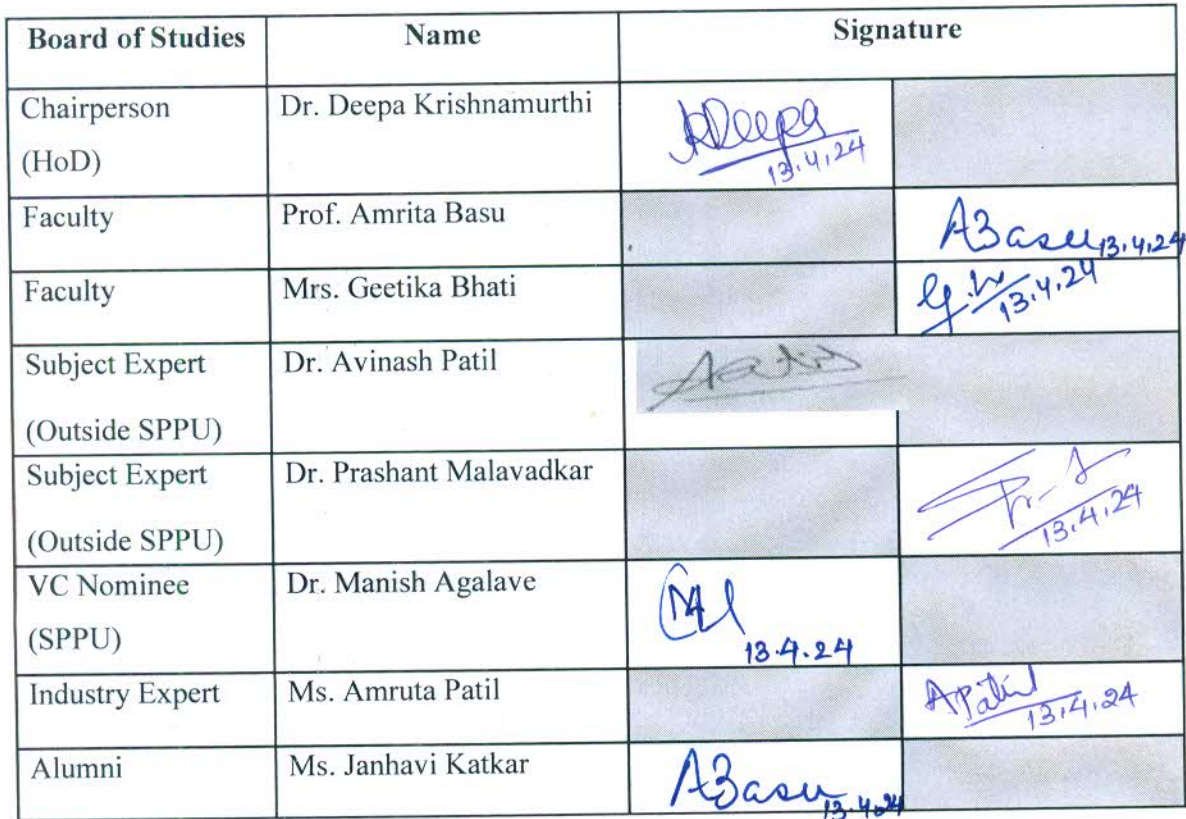 Board of Studies Name Signature
Chairperson Dr. Deepa Krishnamurthi KDeepa
(HoD) 13.4.24
Faculty Prof. Amrita Basu ABasu 13.4.24
Faculty Mrs. Geetika Bhati 13.4.24
Subject Expert Dr. Avinash Patil
(Outside SPPU)
Subject Expert Dr. Prashant Malavadkar
(Outside SPPU) 13.4.24
VC Nominee Dr. Manish Agalave
(SPPU) 13.4.24
Industry Expert Ms. Amruta Patil APatil 13.4.24
Alumni Ms. Janhavi Katkar ABasu 13.4.24